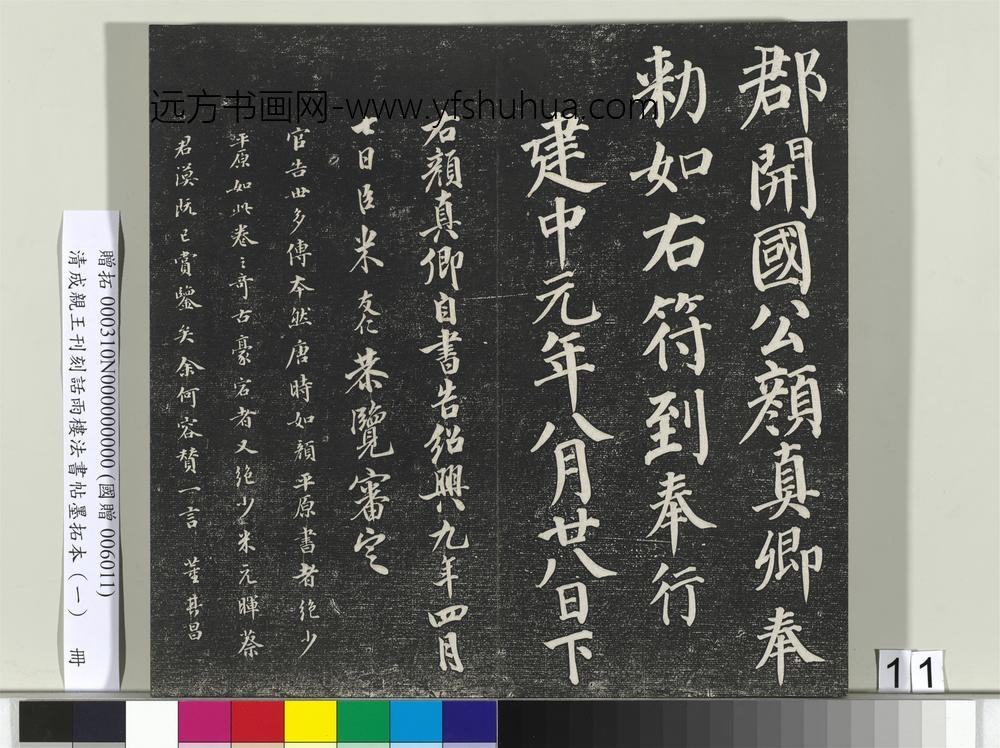 郡開國公顏真卿奉
勑如右符到奉行
建中元年八月廿八日下
右顏真卿自書告紹興九年四月
七日臣米友仁恭覽審定
官告世多傳本然唐時如顏平原書者絕少
平原如此卷之奇古豪宕者又絕少米元暉蔡
君謨既已賞鑒矣余何容贊一言 董其昌
远方书画网-www.yfshuhua.com
贈拓 000310N000000000 (國贈 006011)
清成親王刊刻詒晉樓法書帖墨拓本（一） 冊
11